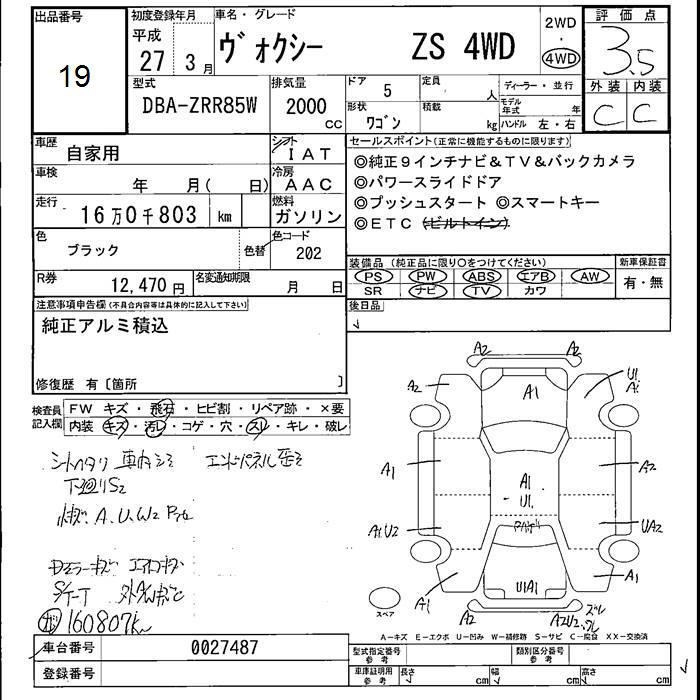 出品番号
19
初度登録年月
平成
27 3月
車名・グレード
ヴォクシー ZS 4WD
2WD
・
4WD
評価点
3.5
外装 内装
C C
型式
DBA-ZRR85W
排気量
2000
CC
ドア 5
定員 人
形状
ワゴン
積載 kg
ディーラー・並行
モデル年式 年
ハンドル 左・右
車歴
自家用
シフト
IAT
車検
年 月( 日)
冷房
AAC
走行
16万0千803 km
燃料
ガソリン
色
ブラック
色替
色コード
202
R券
12,470円
名変通知期限
月 日
セールスポイント(正常に機能するものに限ります)
◎純正9インチナビ&TV&バックカメラ
◎パワースライドドア
◎プッシュスタート ◎スマートキー
◎ETC (ビルトイン)
装備品 (純正品に限り○をつけてください)
PS PW ABS エアB AW
SR ナビ TV カワ
新車保証書
有・無
後日品
注意事項申告欄(不具合内容等は具体的に記入して下さい)
純正アルミ積込
修復歴 有〔箇所 〕
検査員記入欄
FW キズ・飛石・ヒビ割・リペア跡・×要
内装 キズ・汚レ・コゲ・穴・スレ・キレ・破レ
シートヘタリ 車内シミ エンドパネル歪ミ
下廻りS2
小キズ A.U.W2
160807km
A2
A2
A1
U1
A1
A1
A2
A1
U1
A1U2
UA2
U1A1
A1
A1
A2
A2U2
スペア
A-キズ E-エクボ U-凹み W-補修跡 S-サビ C-腐食 XX-交換済
車台番号
0027487
登録番号
型式指定番号
参考
類別区分番号
参考
車庫証明用
参考
長さ cm
幅 cm
高さ cm